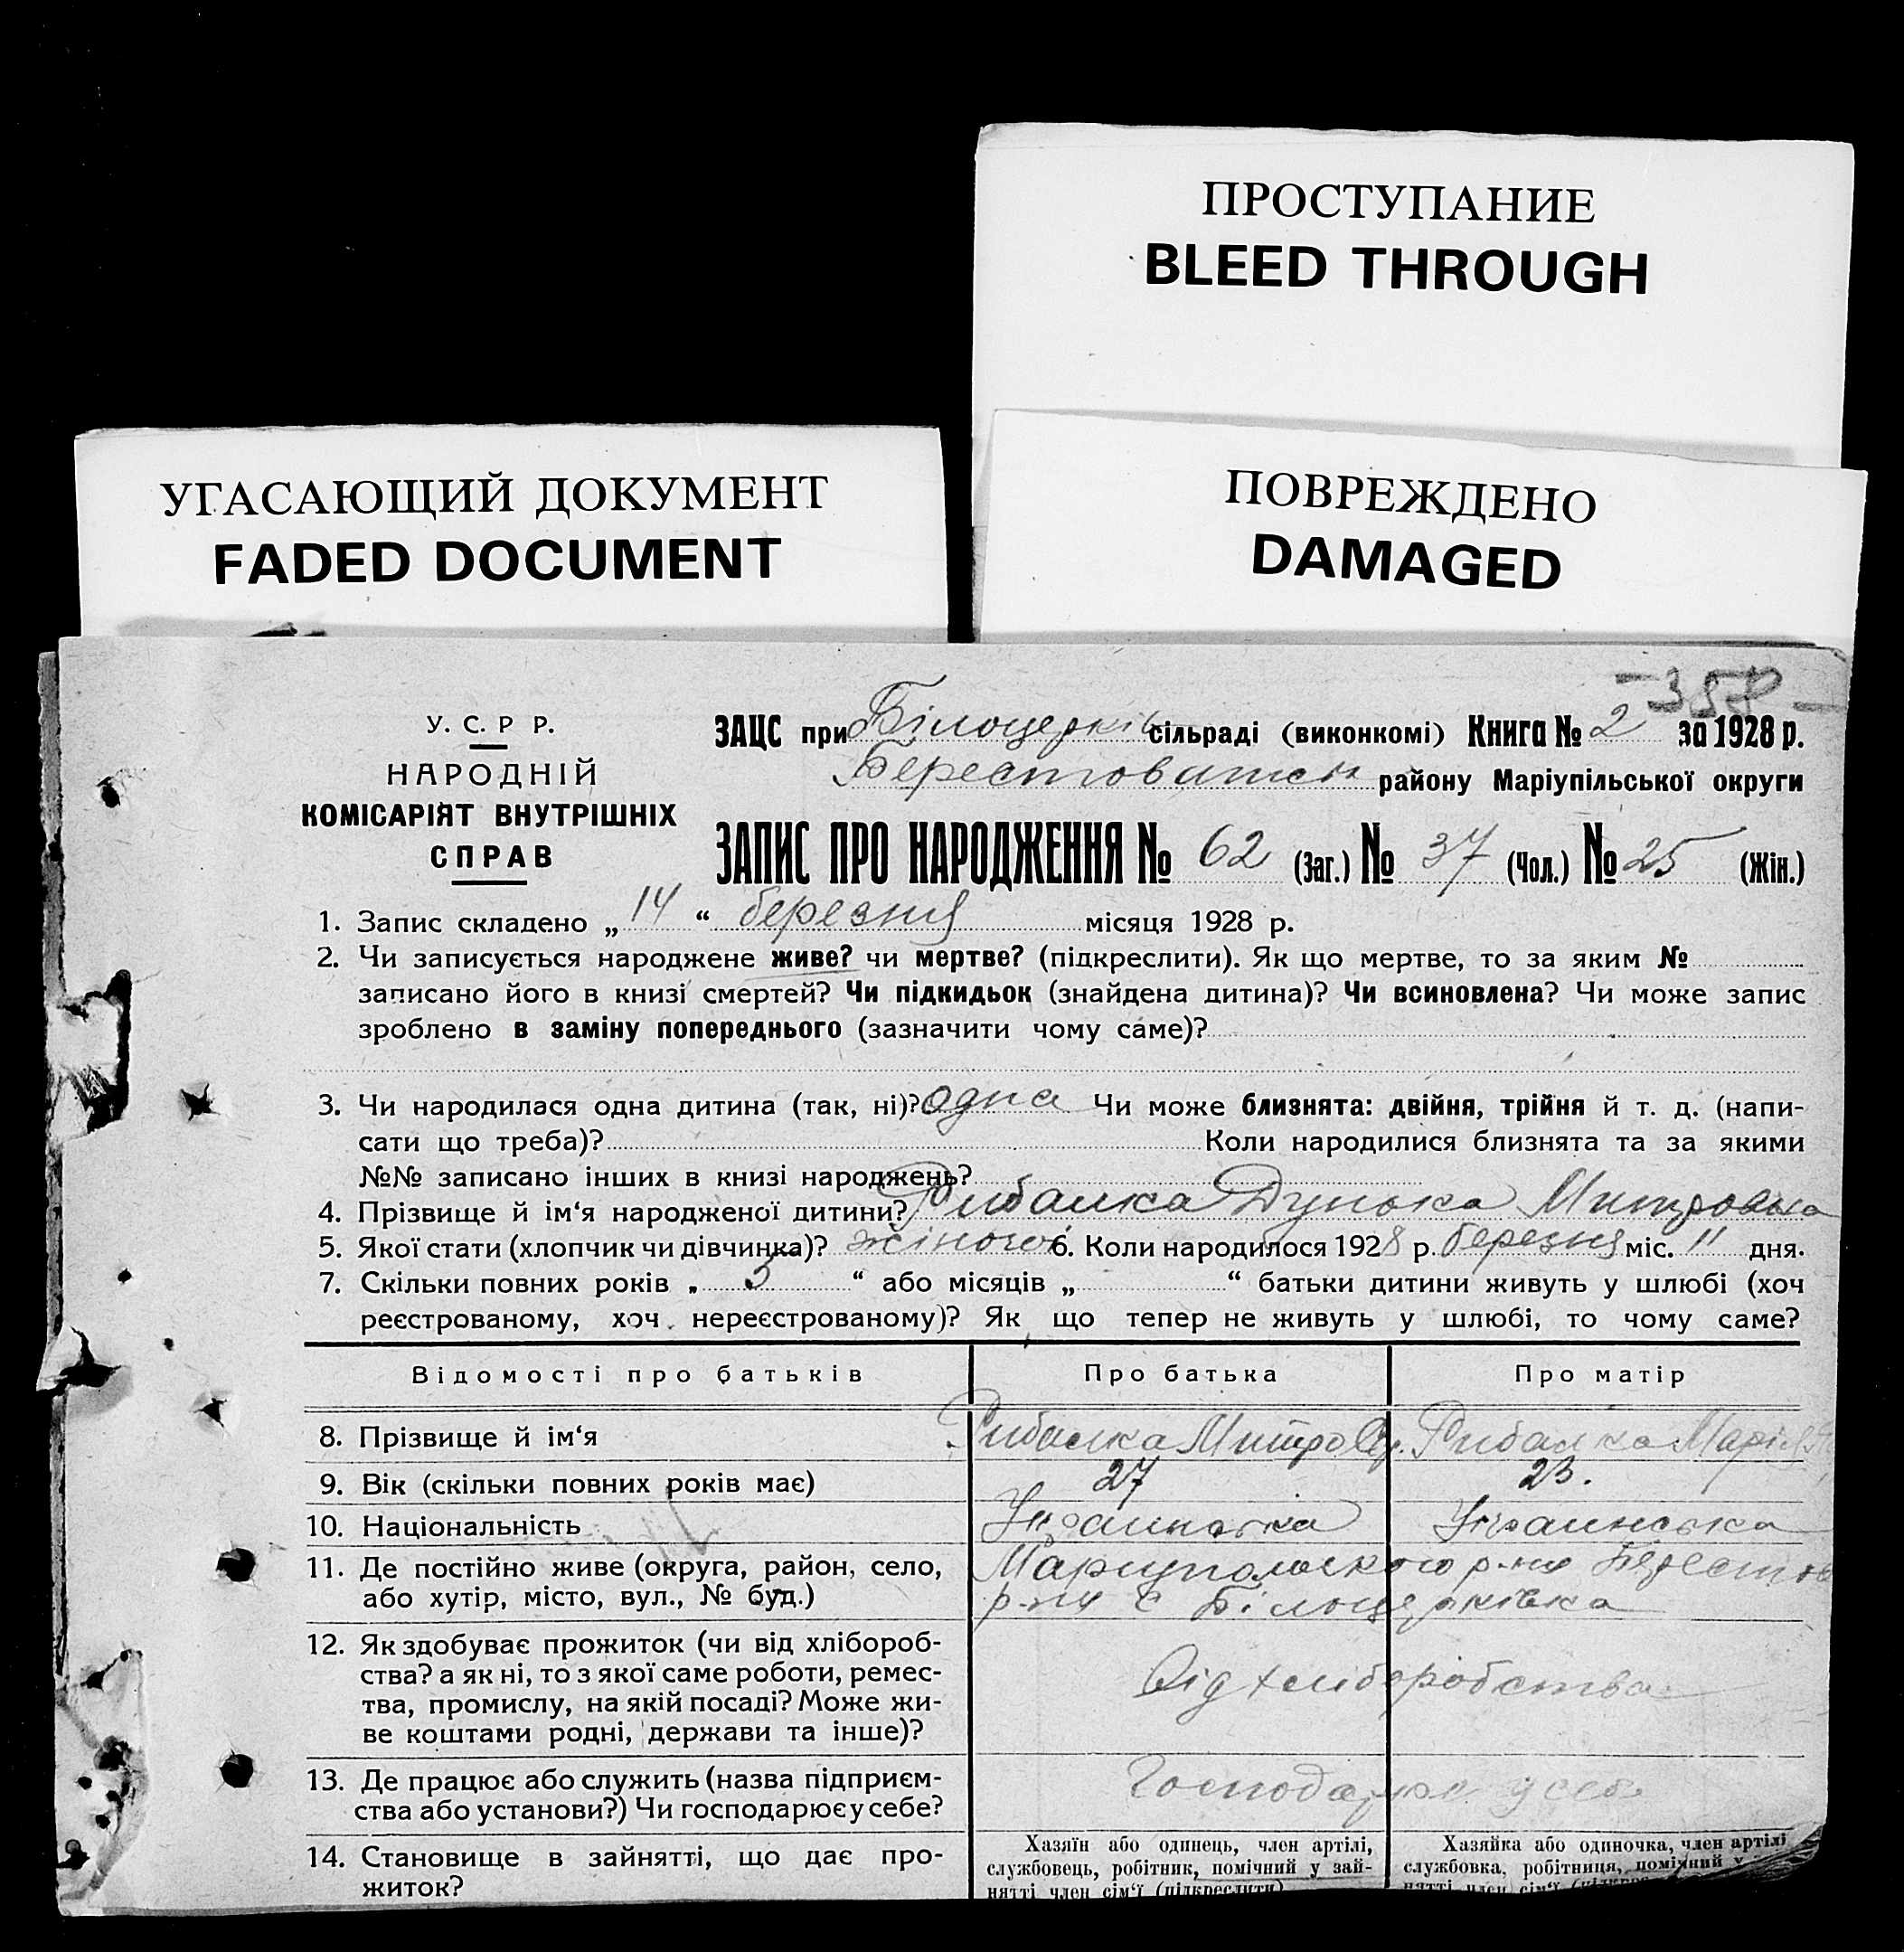 ПРОСТУПАНИЕ
BLEED THROUGH
УГАСАЮЩИЙ ДОКУМЕНТ
FADED DOCUMENT
ПОВРЕЖДЕНО
DAMAGED
У. С. Р Р.
НАРОДНІЙ
КОМІСАРІЯТ ВНУТРІШНІХ
СПРАВ
ЗАЦС при Білоцерків сільраді (виконкомі) Книга № 2 за 1928 р.
району Маріупільської округи
ЗАПИС ПРО НАРОДЖЕННЯ № 62 (Заг.) № 37 (Чол.) № 25 (Жін.)
1. Запис складено „ 14 “ березня місяця 1928 р.
2. Чи записується народжене живе? чи мертве? (підкреслити). Як що мертве, то за яким №
записано його в книзі смертей? Чи підкидьок (знайдена дитина)? Чи всиновлена? Чи може запис
зроблено в заміну попереднього (зазначити чому саме)?
3. Чи народилася одна дитина (так, ні)? одна Чи може близнята: двійня, трійня й т. д. (напи-
сати що треба)? Коли народилися близнята та за якими
№№ записано інших в книзі народжень?
4. Прізвище й ім‘я народженої дитини? Рибалка Дунька Митровна
5. Якої стати (хлопчик чи дівчинка)? жіночої 6. Коли народилося 1928 р. березня міс. 11 дня.
7. Скільки повних років „ 5 “ або місяців „ “ батьки дитини живуть у шлюбі (хоч
реєстрованому, хоч нереєстрованому)? Як що тепер не живуть у шлюбі, то чому саме?
Відомості про батьків Про батька Про матір
8. Прізвище й ім‘я Рибалка Митро Рибалка Марія
9. Вік (скільки повних років має) 27 23.
10. Національність Украинська Украинська
11. Де постійно живе (округа, район, село, Мариупольского р-ну Берестов
або хутір, місто, вул., № буд.) р-ну с Білоцерківка
12. Як здобуває прожиток (чи від хлібороб-
ства? а як ні, то з якої саме роботи, ремес-
тва, промислу, на якій посаді? Може жи-
ве коштами родні, держави та інше)?
Від хлиборобства
13. Де працює або служить (назва підприєм-
ства або установи?) Чи господарює у себе?
Господарює у себе
14. Становище в зайнятті, що дає про-
житок?
Хазяїн або одинець, член артілі,
службовець, робітник, помічний у зай-
нятті член сім‘ї (підкреслити)
Хазяйка або одиночка, член артілі
службовка, робітниця, помічний у
нятті член сім‘ї